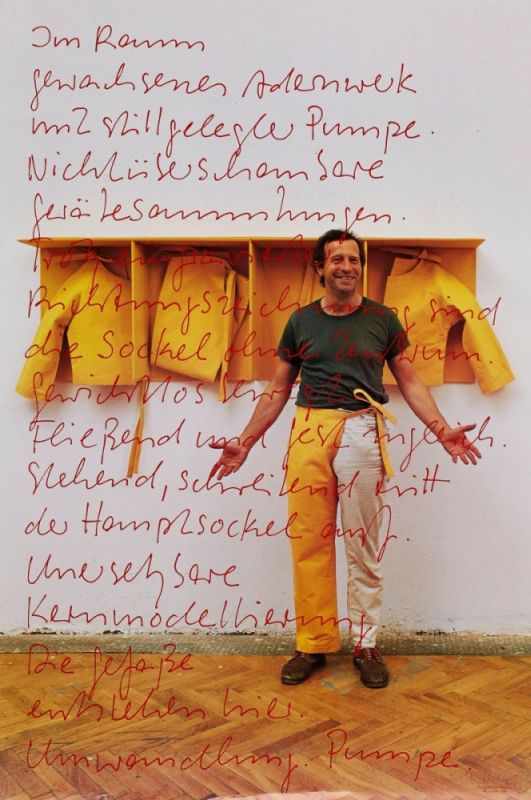 Im Raum
gewachsenes Adernwerk
mit stillgelegter Pumpe.
Nichtüberschaubare
Gerätesammlungen.
Trotz
Richtungszeichnung sind
die Sockel ohne Zentrum.
Gewichtslos
Fließend und fest zugleich.
Stehend, schreitend tritt
der Hauptsockel auf.
Unersetzbare
Kernmodellierung
Die Gefäße
entstehen hier.
Umwandlung. Pumpe.